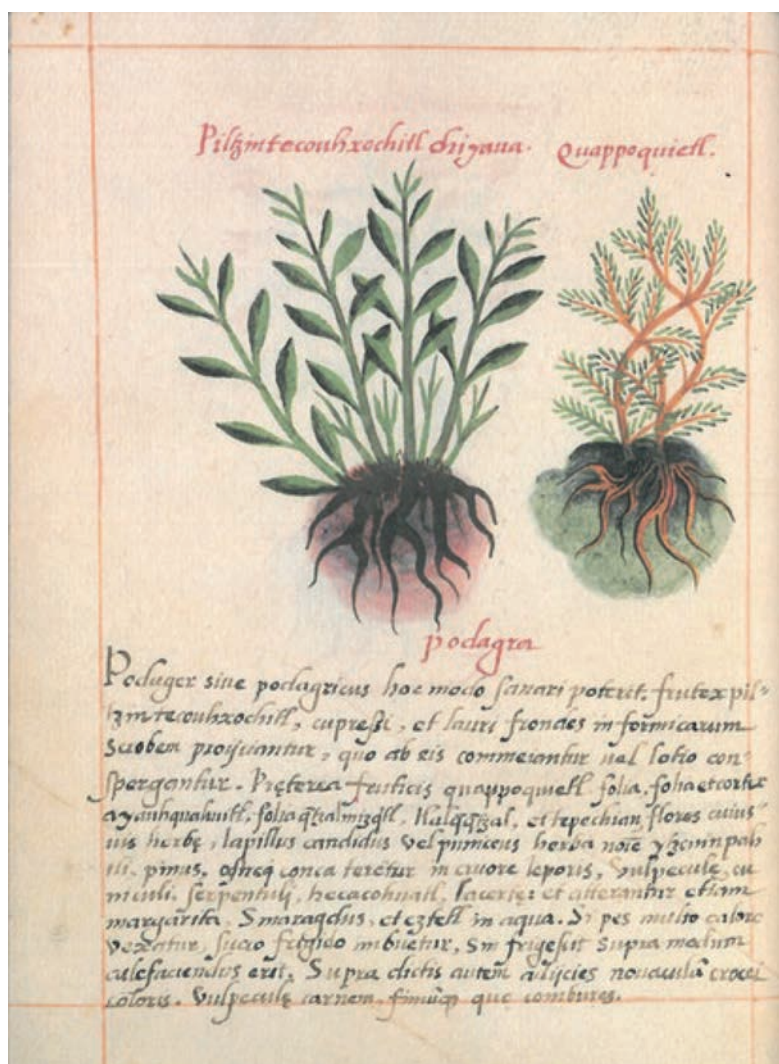 Piltzintecouhxochitl chiyava. Quappoquietl.
podagra
Poduger sive podagricus hoc modo sanari poterit. frutex pil=
tzintecouhxochitl, cupressi, et lauri frondes in formicarum
scrobem proijciantur, quo ab eis commeiantur vel lotio con=
spergantur. Pręterea fruticis quappoquietl folia, folia et cortex
ayauhquahuitl, folia
et tepechian, flores cuius
vis herbę, lapillus candidus vel puniceus herba
pinus, conca teretur in cruore leporis, Vulpeculę, cu
niculi, serpentuli, hecacohuatl, lacertę, et atterantur etiam
margarita, Smaragdus, et eztetl in aqua. Si pes multo calore
vexatur, succo frigido imbuetur, Sin frigescit supra modum
calefaciendus erit. Supra dictis autem adijcies novaculā crocei
coloris. Vulpeculę carnem, fimūq que combures.